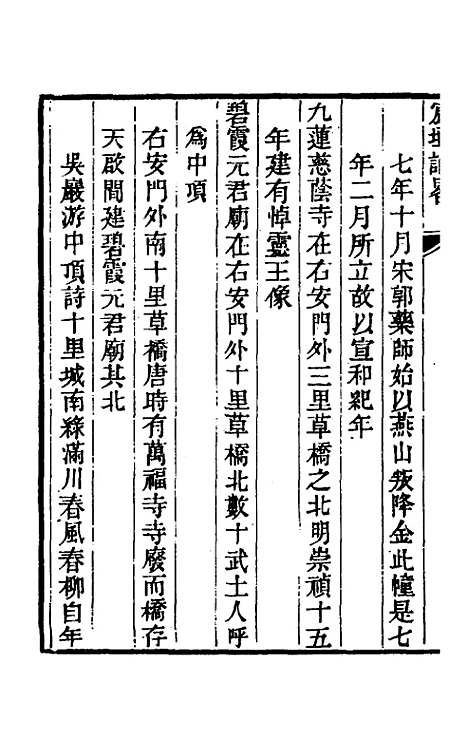 宸垣識畧
七年十月宋郭藥師始以燕山叛降金此幢是七
年二月所立故以宣和紀年
九蓮慈蔭寺在右安門外三里草橋之北明崇禎十五
年建有悼靈王像
碧霞元君廟在右安門外十里草橋北數十武土人呼
爲中項
右安門外南十里草橋唐時有萬福寺寺廢而橋存
天啟間建碧霞元君廟其北
吳巖游中頂詩十里城南綠滿川春風春柳自年